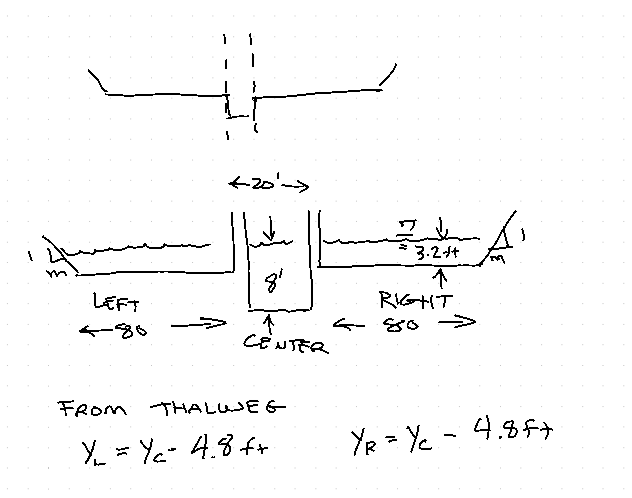 20'
1
m
8'
3.2 ft
1
m
LEFT
80
CENTER
RIGHT
80
FROM THALWEG
Y_L = Y_C - 4.8 ft
Y_R = Y_C - 4.8 ft